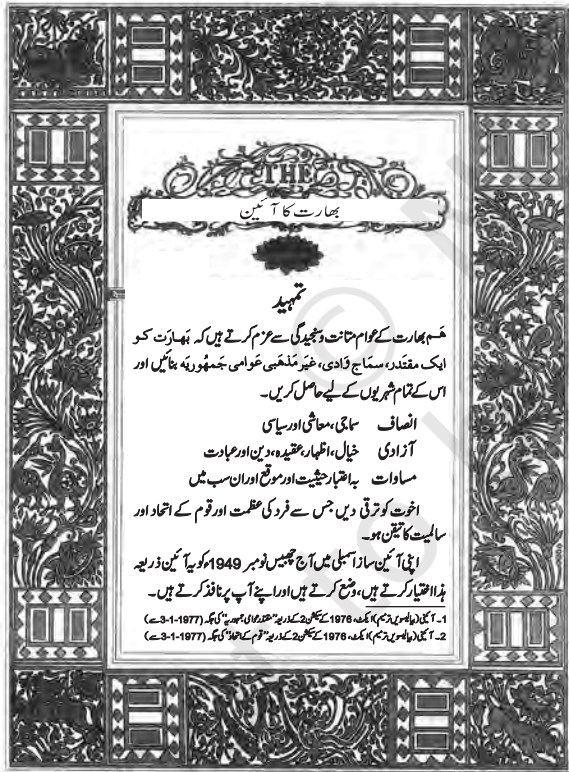 THE
بھارت کا آئین
تمہید
ہَم بھارت کے عوام متانت و سنجیدگی سے عزم کرتے ہیں کہ بَھارَت کو
ایک مقتَدر، سمَاج وَادی، غیَر مَذہَبی عَوامی جَمہُوریَہ بنائیں اور
اس کے تمام شہریوں کے لیے حاصل کریں۔
انصاف سماجی، معاشی اور سیاسی
آزادی خیال، اظہار، عقیدہ، دین اور عبادت
مساوات بہ اعتبار حیثیت اور موقع اور ان سب میں
اخوت کو ترقی دیں جس سے فرد کی عظمت اور قوم کے اتحاد اور
سالمیت کا تیقن ہو۔
اپنی آئین ساز اسمبلی میں آج چھبیس نومبر 1949ء کو یہ آئین ذریعہ
ہذا اختیار کرتے ہیں، وضع کرتے ہیں اور اپنے آپ پر نافذ کرتے ہیں۔
1۔ آئینی (بیالیسویں ترمیم) ایکٹ، 1976 کے سیکشن 2 کے ذریعہ "مقتدر عوامی جمہوریہ" کی جگہ (3-1-1977 سے)
2۔ آئینی (بیالیسویں ترمیم) ایکٹ، 1976 کے سیکشن 2 کے ذریعہ "قوم کے اتحاد" کی جگہ (3-1-1977 سے)